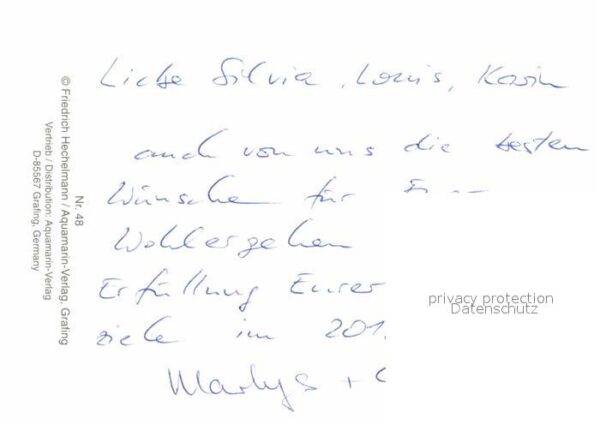 Liebe Silvia, Louis, Karin
auch von uns die besten
Wünsche für
Wohlergehen
Erfüllung Eurer
ziele im 201
Marlys +
Nr. 48
© Friedrich Hechelmann / Aquamarin-Verlag, Grafing
Vertrieb / Distribution: Aquamarin-Verlag
D-85567 Grafing, Germany
privacy protection
Datenschutz